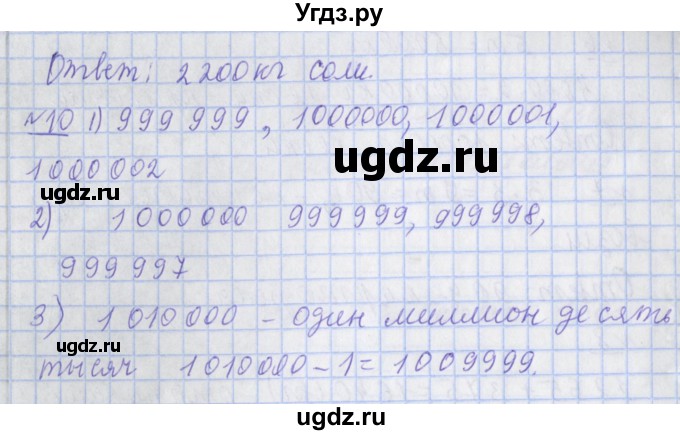 Угдз.ру
Ответ: 2200кг соли.
№10 1) 999 999, 1000000, 1000001,
ugdz.ru
1000 002
ugdz.ru
2) 1000 000 999 999, 999 998,
999 997
3) 1 010 000 – один миллион десять
ugdz.ru
тысяч 1010000–1= 1009999.
ugdz.ru
ugdz.ru